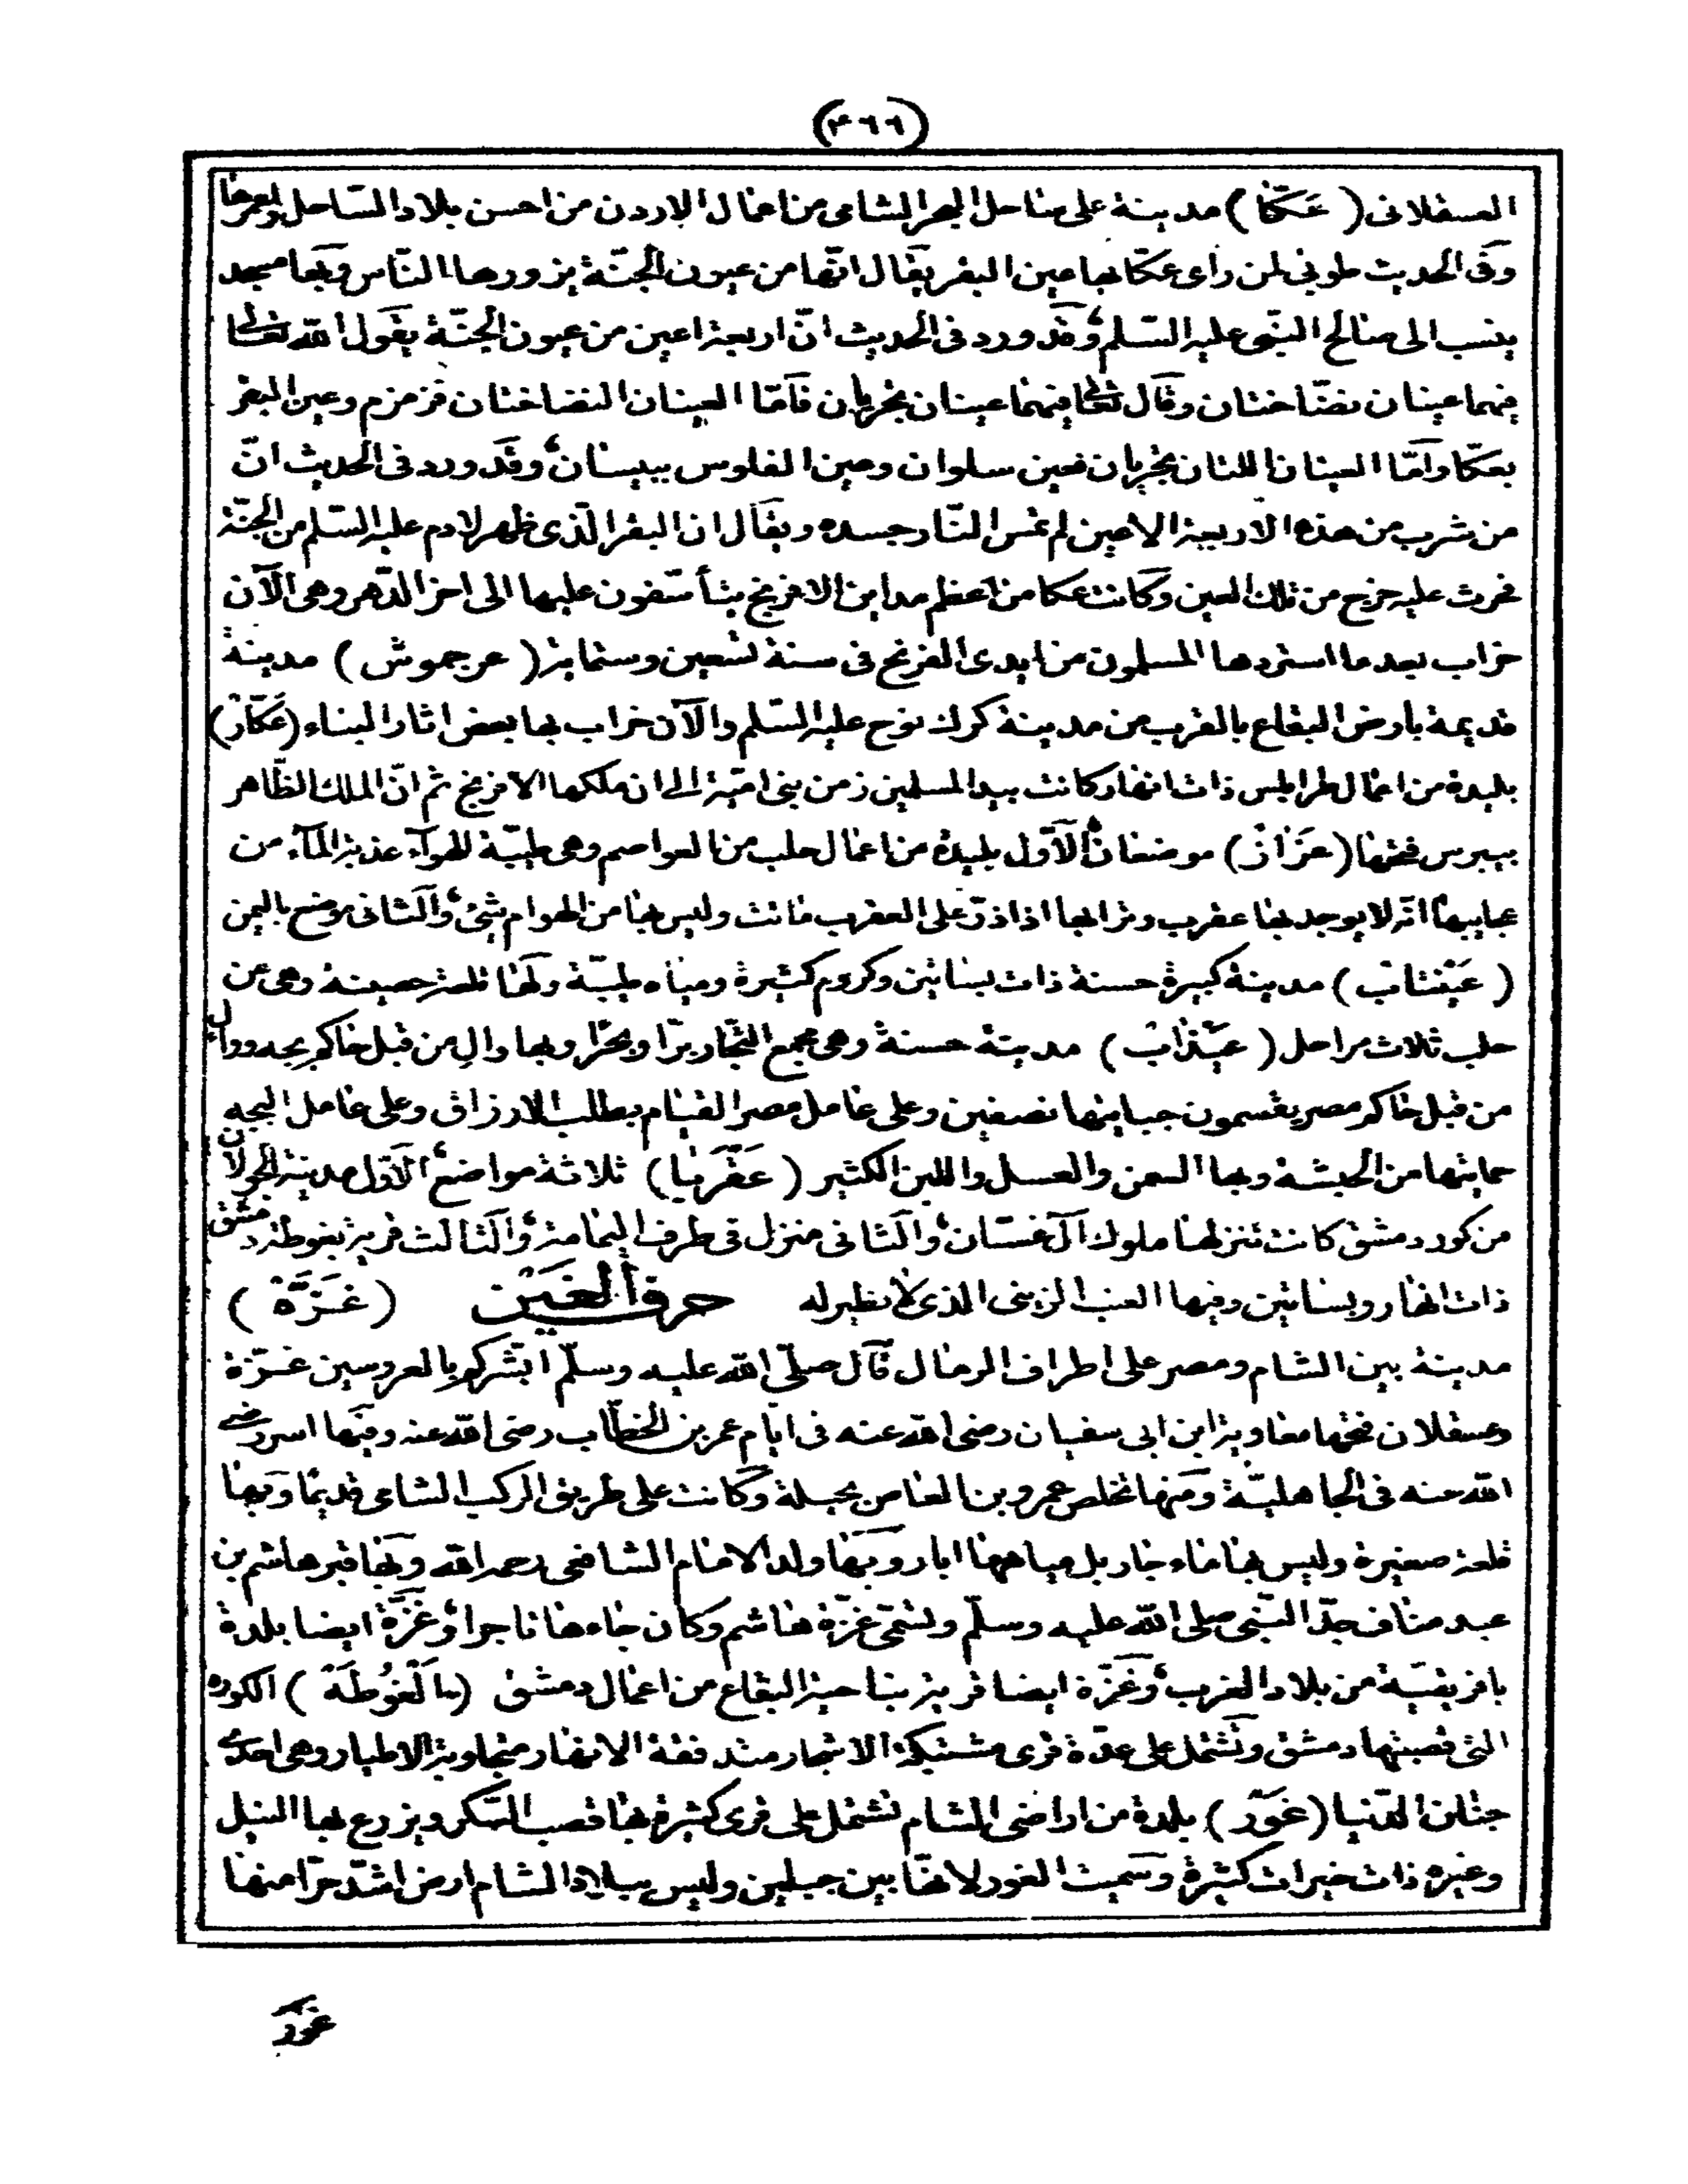 (٤٦٦)
العسقلانى (عَكّا) مدينة على ساحل البحر الشامى من اعمال الاردن من احسن بلاد السّاحل واعمرها
وفى الحديث طوبى لمن راى عكّا بها عين البقر يقال انّها من عيون الجنّة يزورها الناس وبها مسجد
ينسب الى صالح النبّى عليه السّلم وقد ورد فى الحديث انّ اربعة اعين من عيون الجنّة يقول الله تعالى
فيهما عينان نضّاختان وقال تعالى فيهما عينان تجريان فامّا العينان النضاختان فزمزم وعين البقر
بعكّا وامّا العينان اللتان تجريان فعين سلوان وعين الفلوس ببيسان وقد ورد فى الحديث انّ
من شرب من هذه الاربعة الاعين لم تمس النّار جسده ويقال ان البقر الّذى ظهر لادم عليه السّلم من الجنّة
فحرث عليه خرج من تلك العين وكانت عكا من اعظم مداين الافرنج يتأسّفون عليها الى اخر الدّهر وهى الآن
خراب بعد ما استردها المسلمون من ايدى الفرنج فى سنة تسعين وستماية (عرجموش) مدينة
قديمة بأرض البقاع بالقرب من مدينة كرك نوح عليه السّلم والآن خراب بها بعض اثار البناء (عَكّارْ)
بليدة من اعمال طرابلس ذات انهار كانت بيد المسلمين زمن بنى اميّة الى ان ملكها الافرنج ثم انّ الملك الظّاهر
بيبرس فتحها (عَزَازْ) موضعان الأوّل بليدة من اعمال حلب من العواصم وهى طيبّة الهوآء عذبة المآء من
عجايبها انّه لا يوجد بها عقرب وترابها اذا ذرّ على العقرب ماتت وليس بها من الهوام شئ والثانى موضع باليمن
(عَيْنتابْ) مدينة كبيرة حسنة ذات بساتين وكروم كثيرة ومياه طيبّة ولها قلعة حصينة وهى عن
حلب ثلاث مراحل (عَيْذَابْ) مدينة حسنة وهى مجمع التجّار برّا وبحرًا وبها والٍ من قبل حاكم بجه ووال
من قبل حاكم مصر يقسمون جبايتها نصفين وعلى عامل مصر القيام بطلب الارزاق وعلى عامل البجه
حمايتها من الحبشة وبها السمن والعسل واللبن الكثير (عَقْرَبَا) ثلاثة مواضع الأوّل مدينة الجولان
من كور دمشق كانت تنزلها ملوك آل غسّان والثانى منزل فى طرف اليمامة والثالث قرية بغوطة دمشق
ذات انهار وبساتين وفيها العنب الزينى الذى لا نظير له حرف الغَيْن (غَزَّةْ)
مدينة بين الشام ومصر على اطراف الرمال قال صلّى الله عليه وسلّم ابشركم بالعروسين غزّة
وعسقلان فتحها معاوية ابن ابى سفيان رضى الله عنه فى ايّام عمر بن الخطّاب رضى الله عنه وفيها اسر رضى
الله عنه فى الجاهليّة ومنها تخلص عمرو بن العاص بحيلة وكانت على طريق الركب الشامى قديمًا وبها
قلعة صغيرة وليس بها ماء جار بل مياهها ابار وبها ولد الامام الشافعى رحمه الله وبها قبر هاشم بن
عبد مناف جدّ النّبى صلى الله عليه وسلّم وتسمّى غزّة هاشم وكان جاءها تاجرا وغَزَّة ايضا بلدة
بافريقيّة من بلاد الغرب وغزّة ايضا قرية بناحية البقاع من اعمال دمشق (الغُوطَةْ) الكوره
التى قصبتها دمشق وتشتمل على عدّة قرى مشتبكة الاشجار متدفقة الانهار متجاوبة الاطيار وهى احدى
جنان الدّنيا (غَوْر) بلدة من اراضى الشام تشتمل على قرى كثيرة بها قصب السّكر ويزرع بها النيل
وغيره ذات خيرات كثيرة وسميت الغور لانّها بين جبلين وليس ببلاد الشام ارض اشدّ حرّا منها
غور